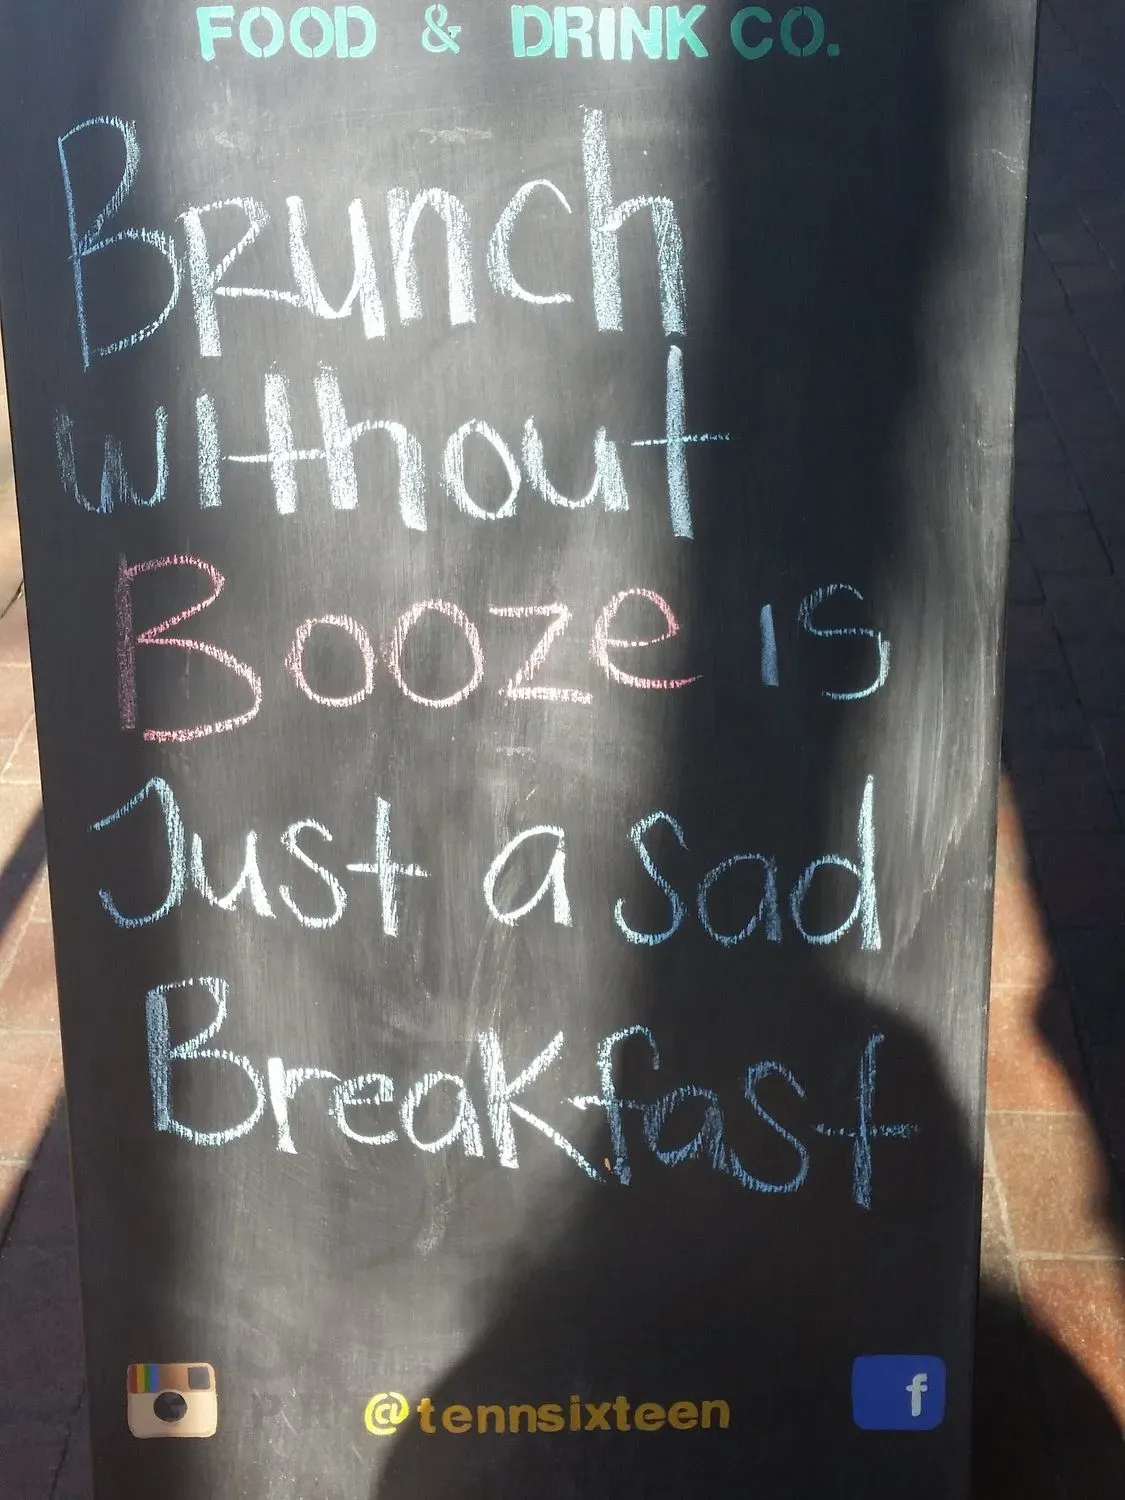 FOOD & DRINK CO.
Brunch
without
Booze is
Just a sad
Breakfast
@tennsixteen
f